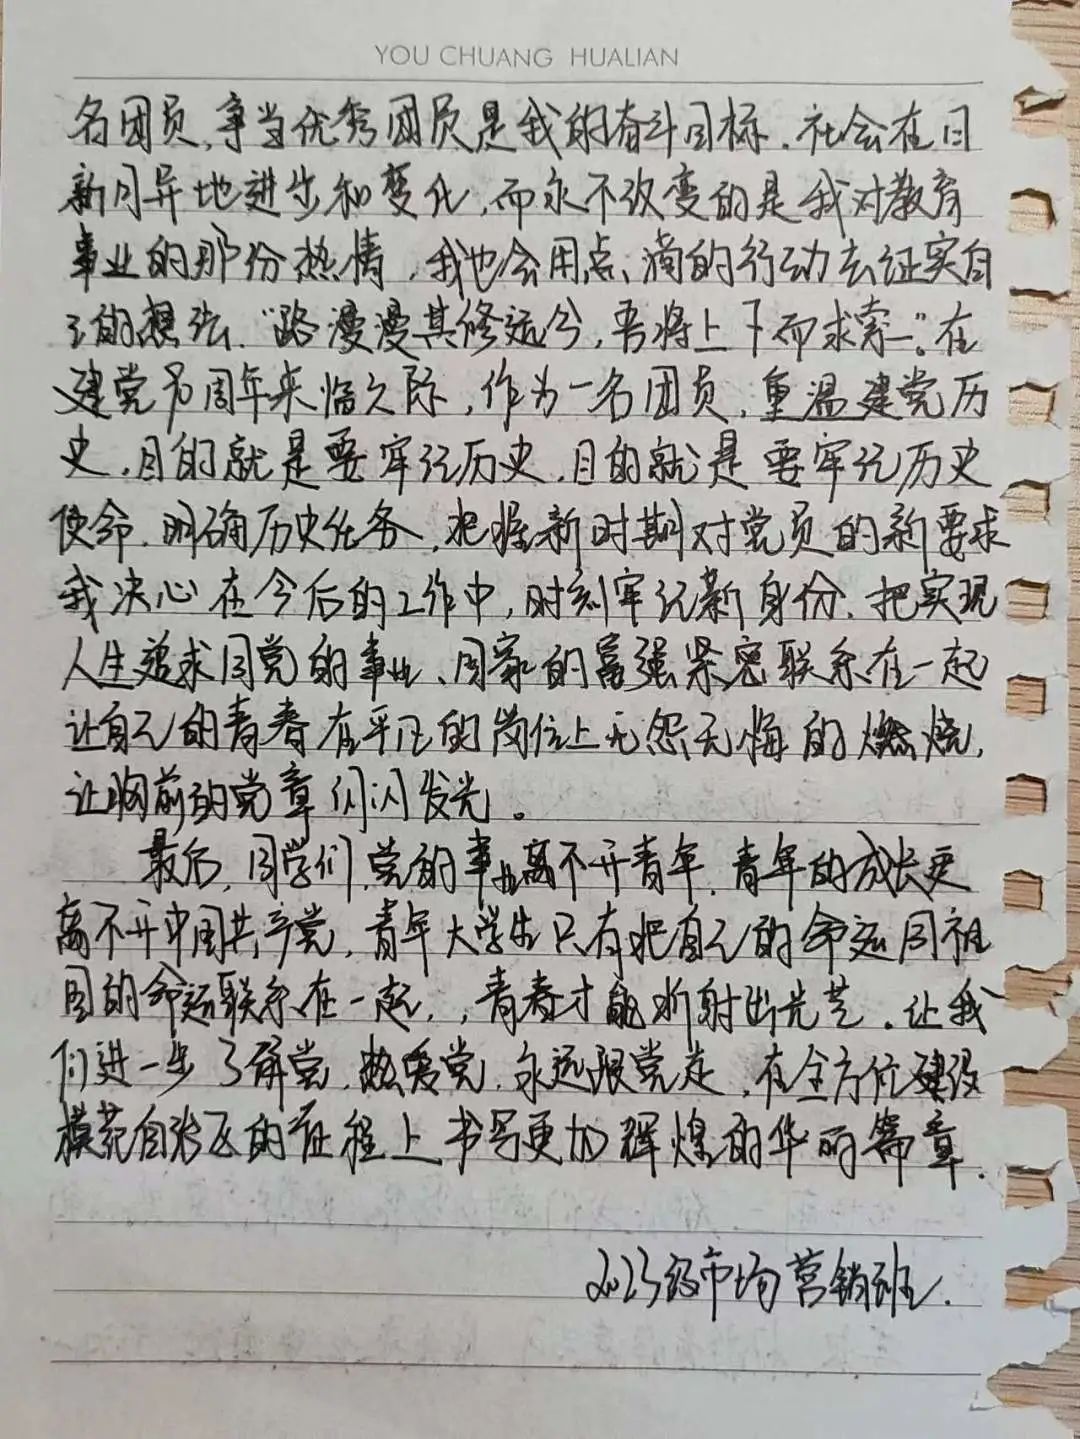 YOU CHUANG HUALIAN
名团员,争当优秀团员是我的奋斗目标.社会在日
新月异地进步和变化,而永不改变的是我对教育
事业的那份热情,我也会用点、滴的行动去证实自
己的想法."路漫漫其修远兮,吾将上下而求索一"。在
建党 周年来临之际,作为一名团员,重温建党历
史,目的就是要牢记历史,目的就是要牢记历史
使命.明确历史任务,把握新时期对党员的新要求
我决心在今后的工作中,时刻牢记新身份.把实现
人生追求同党的事业、国家的富强紧密联系在一起
让自己的青春在平凡的岗位上无怨无悔的燃烧,
让胸前的党章闪闪发光。
最后,同学们,党的事业离不开青年,青年的成长更
离不开中国共产党,青年大学生只有把自己的命运同祖
国的命运联系在一起,,青春才能 射出光芒.让我
们进一步了解党,热爱党,永远跟党走,在全方位建设
模范自治区的征程上书写更加辉煌的华丽篇章.
2023级市场营销班.